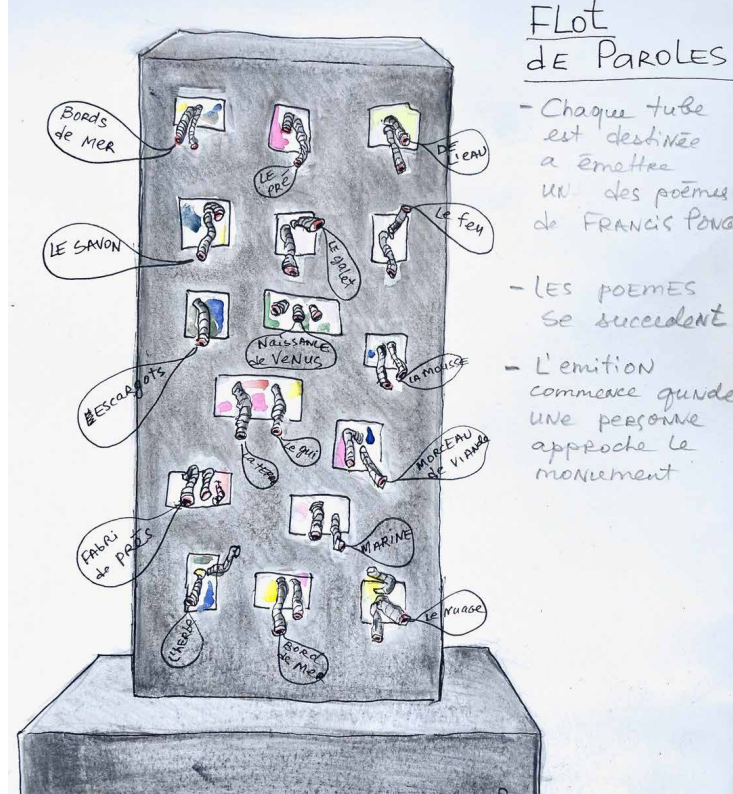 FLOT
DE PAROLES
- Chaque tube
est destinée
a émettre
UN des poémes
de FRANCIS PONG
- LES POEMES
se succedent
- L'emition
commence qunde
UNE PERSONNE
approche le
monument
BORDS
de MER
LE
PRÉ
DE
L'EAU
LE SAVON
LE galet
Le feu
ESCARGOTS
NAISSANCE
de VENUS
LA MOUSSE
LA TERRE
Le gui
MORCEAU
de VIANDE
FABRI
de PRÉS
MARINE
L'herbe
BORD
de MER
Le nuage